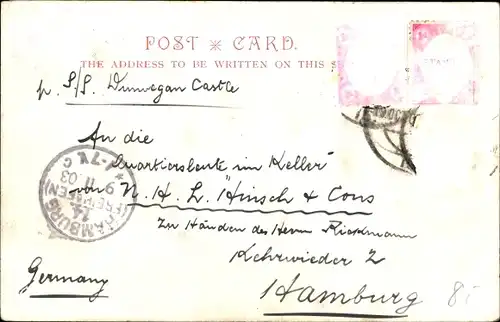 POST * CARD.
THE ADDRESS TO BE WRITTEN ON THIS S
p. S/S. Dunvegan Castle
An die
"Quartiersleute im Keller"
von N. H. L. "Hinsch & Cons
Zu Händen des Herrn Rieckmann
Kehrwieder 2
Hamburg
Germany
HAMBURG
14
(FREIHAFEN)
9 11 03
6-7 V.
8.-